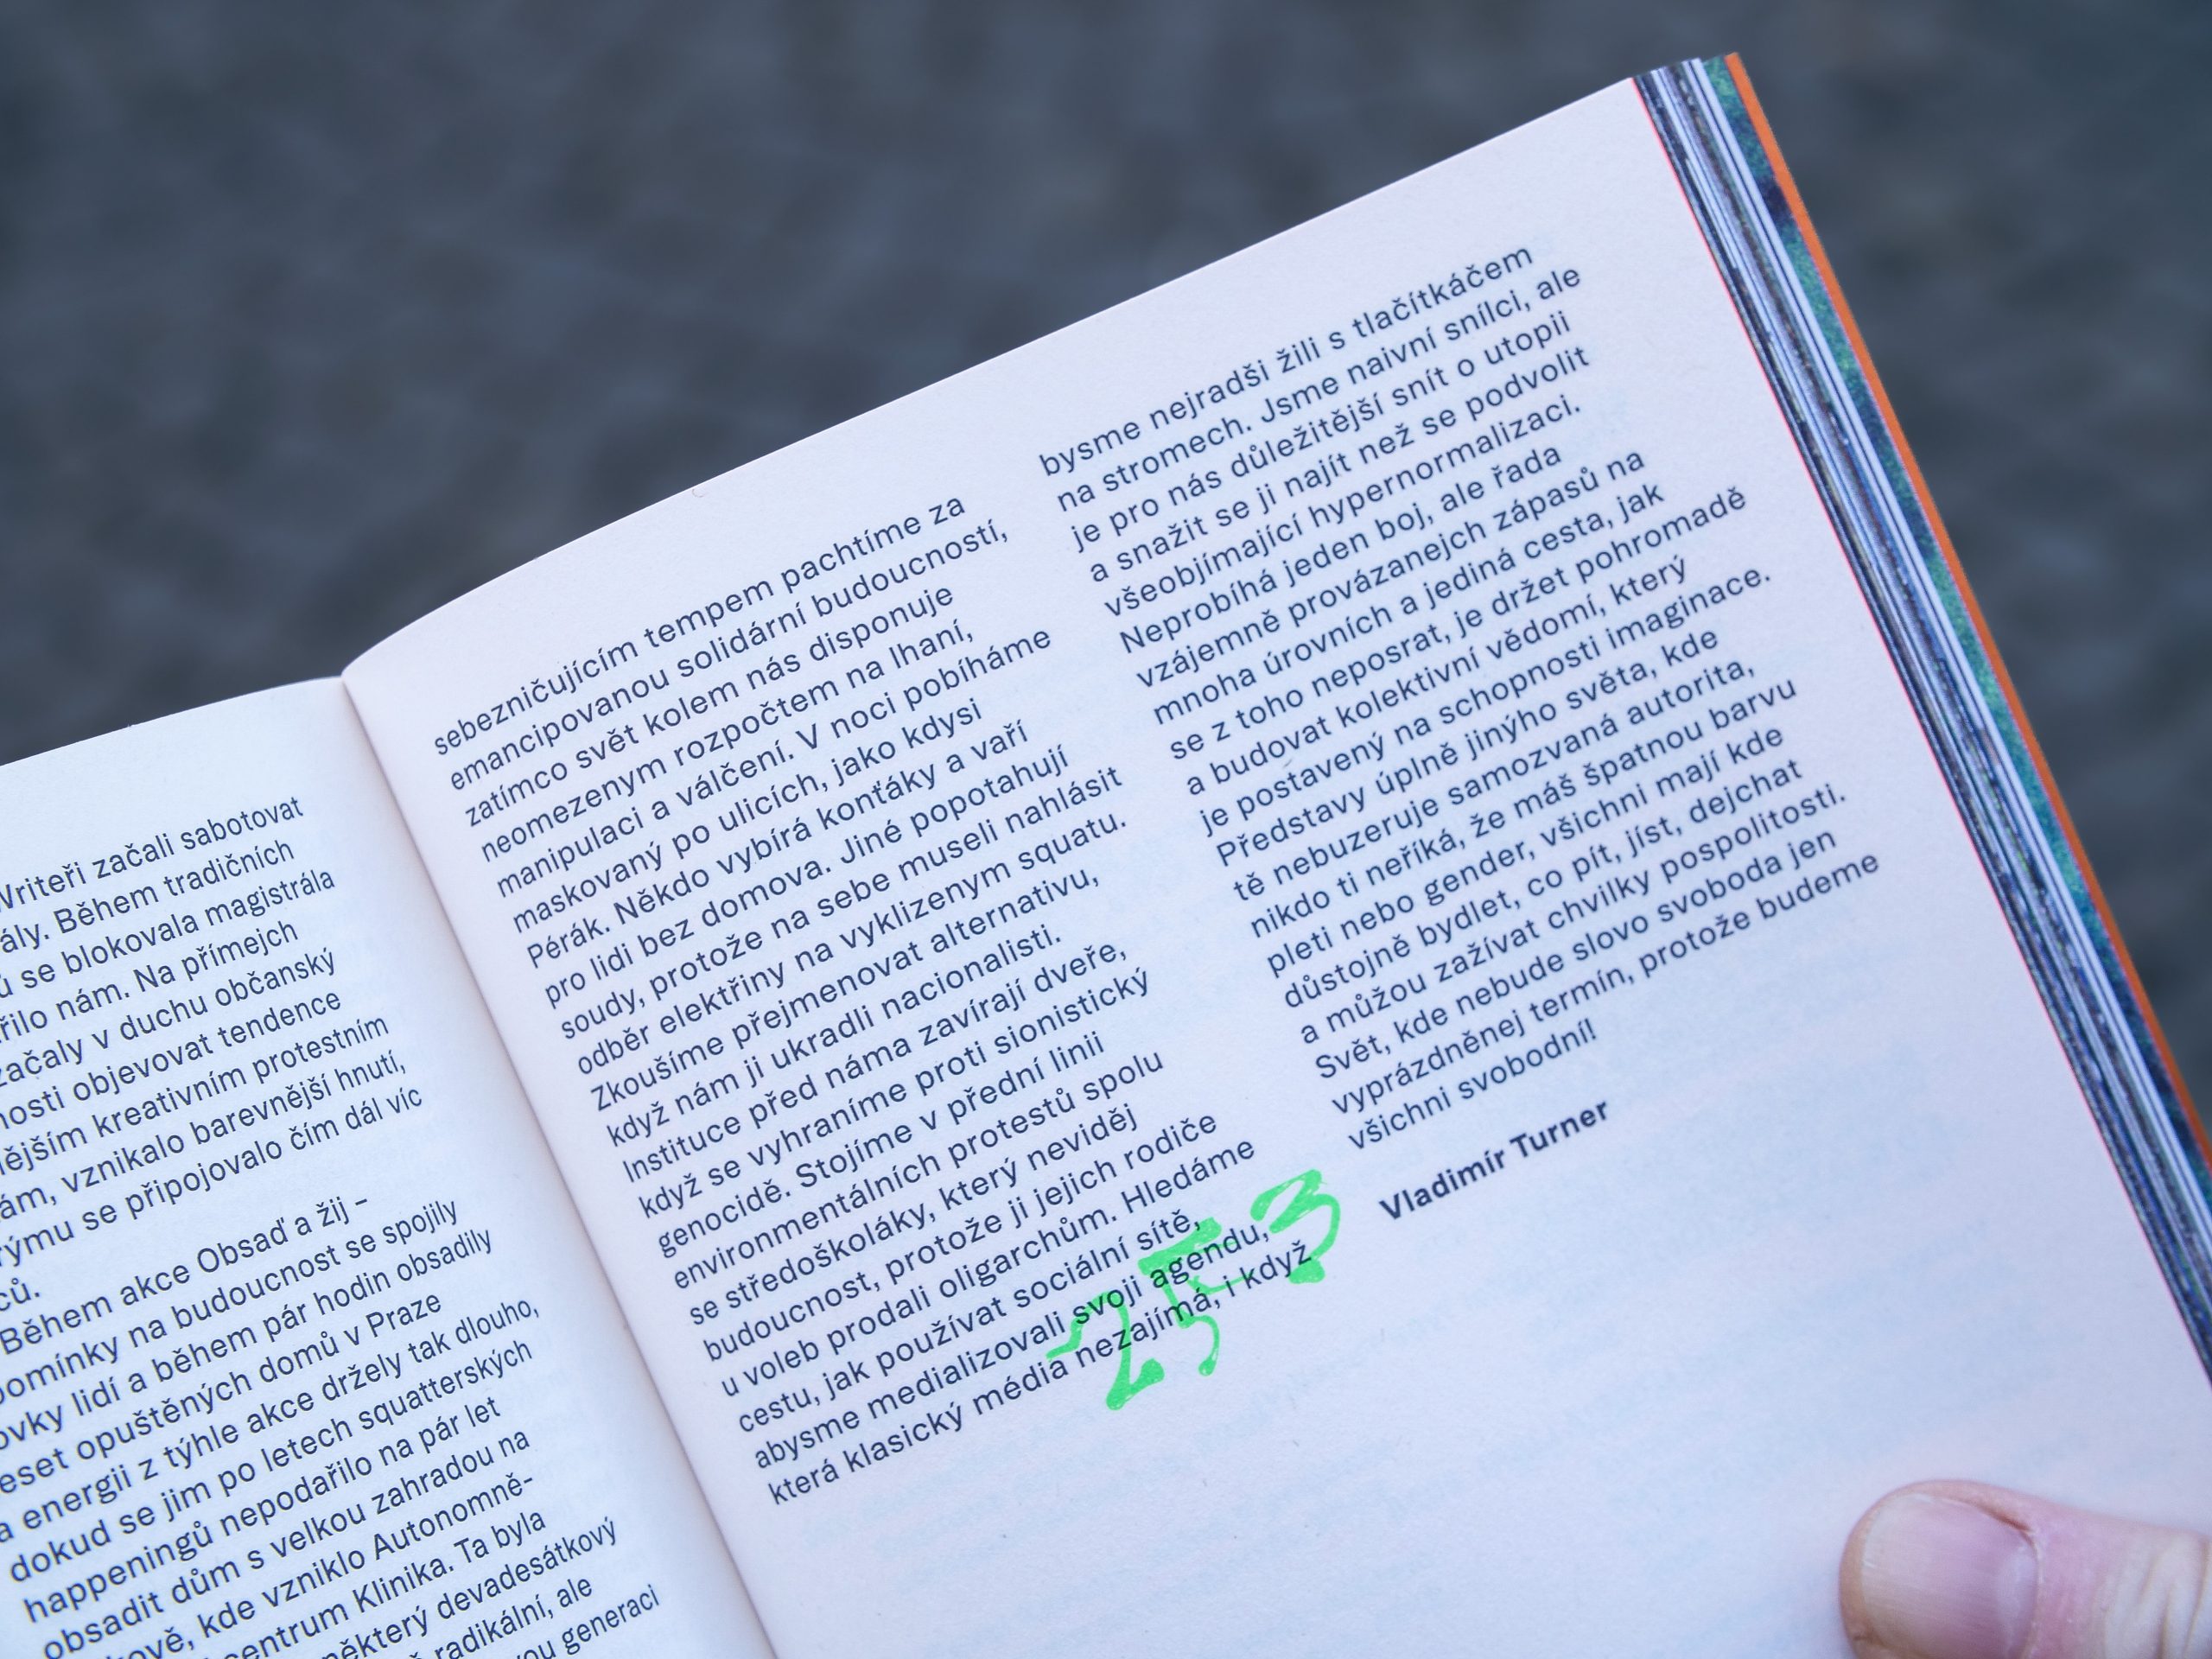 Writeři začali sabotovat
ály. Během tradičních
se blokovala magistrála
nám. Na přímejch
začaly v duchu občanský
objevovat tendence
kreativním protestním
vznikalo barevnější hnutí,
se připojovalo čím dál víc
Během akce Obsaď a žij –
na budoucnost se spojily
lidí a během pár hodin obsadily
opuštěných domů v Praze
a energii z týhle akce držely tak dlouho,
dokud se jim po letech squatterských
happeningů nepodařilo na pár let
obsadit dům s velkou zahradou na
kde vzniklo Autonomně-
centrum Klinika. Ta byla
některý devadesátkový
radikální, ale
generaci
sebezničujícím tempem pachtíme za
emancipovanou solidární budoucností,
zatímco svět kolem nás disponuje
neomezenym rozpočtem na lhaní,
manipulaci a válčení. V noci pobíháme
maskovaný po ulicích, jako kdysi
Pérák. Někdo vybírá konťáky a vaří
pro lidi bez domova. Jiné popotahují
soudy, protože na sebe museli nahlásit
odběr elektřiny na vyklizenym squatu.
Zkoušíme přejmenovat alternativu,
když nám ji ukradli nacionalisti.
Instituce před náma zavírají dveře,
když se vyhraníme proti sionistický
genocidě. Stojíme v přední linii
environmentálních protestů spolu
se středoškoláky, který neviděj
budoucnost, protože ji jejich rodiče
u voleb prodali oligarchům. Hledáme
cestu, jak používat sociální sítě,
abysme medializovali svoji agendu,
která klasický média nezajímá, i když
bysme nejradši žili s tlačítkáčem
na stromech. Jsme naivní snílci, ale
je pro nás důležitější snít o utopii
a snažit se ji najít než se podvolit
všeobjímající hypernormalizaci.
Neprobíhá jeden boj, ale řada
vzájemně provázanejch zápasů na
mnoha úrovních a jediná cesta, jak
se z toho neposrat, je držet pohromadě
a budovat kolektivní vědomí, který
je postavený na schopnosti imaginace.
Představy úplně jinýho světa, kde
tě nebuzeruje samozvaná autorita,
nikdo ti neříká, že máš špatnou barvu
pleti nebo gender, všichni mají kde
důstojně bydlet, co pít, jíst, dejchat
a můžou zažívat chvilky pospolitosti.
Svět, kde nebude slovo svoboda jen
vyprázdněnej termín, protože budeme
všichni svobodní!
Vladimír Turner